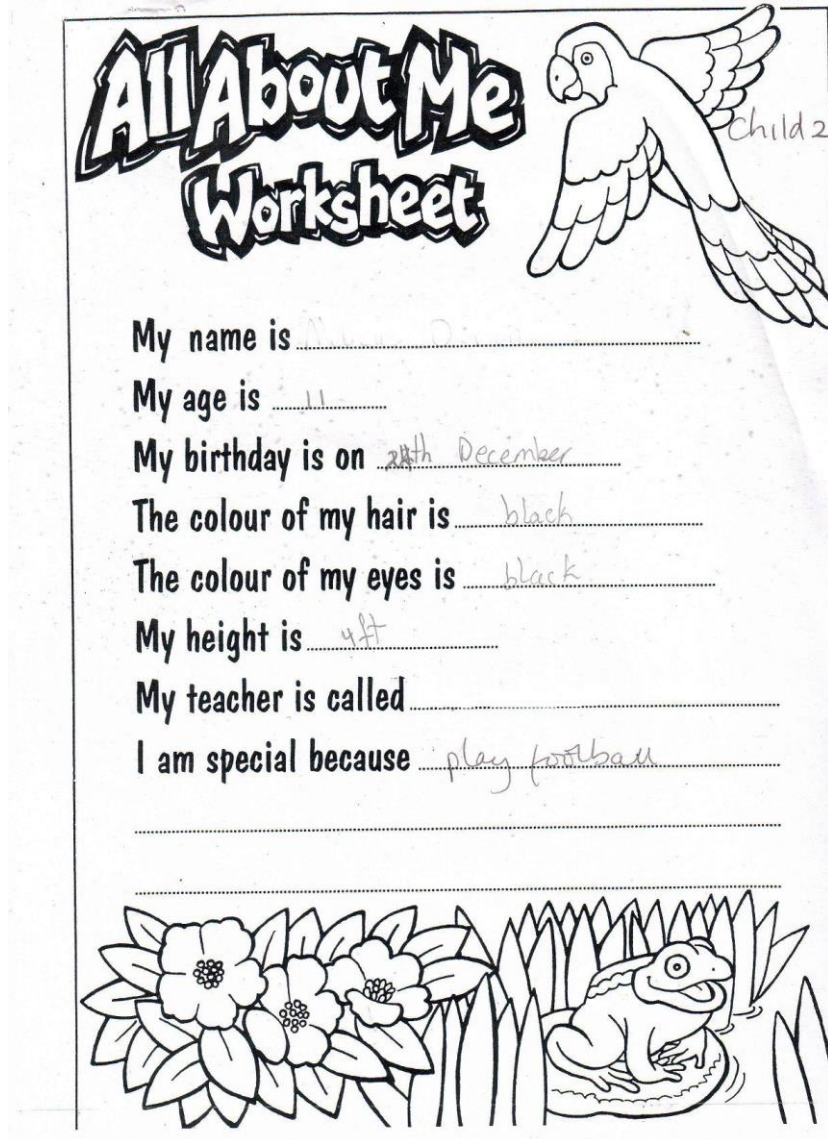 All About Me
Worksheet
Child 2
My name is
My age is 11
My birthday is on 24th December
The colour of my hair is black
The colour of my eyes is black
My height is 4ft
My teacher is called
I am special because play football